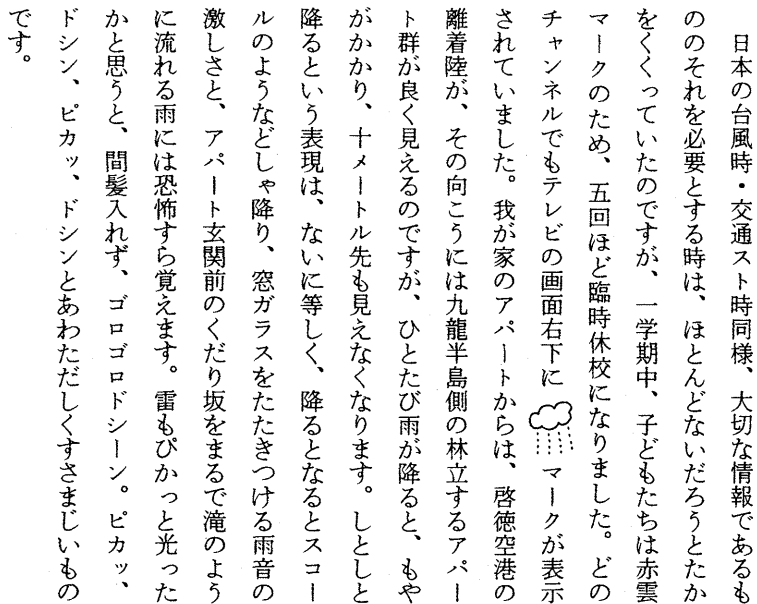 日本の台風時・交通スト時同様、大切な情報であるも
ののそれを必要とする時は、ほとんどないだろうとたか
をくくっていたのですが、一学期中、子どもたちは赤雲
マークのため、五回ほど臨時休校になりました。どの
チャンネルでもテレビの画面右下に マークが表示
されていました。我が家のアパートからは、啓徳空港の
離着陸が、その向こうには九龍半島側の林立するアパー
ト群が良く見えるのですが、ひとたび雨が降ると、もや
がかかり、十メートル先も見えなくなります。しとしと
降るという表現は、ないに等しく、降るとなるとスコー
ルのようなどしゃ降り、窓ガラスをたたきつける雨音の
激しさと、アパート玄関前のくだり坂をまるで滝のよう
に流れる雨には恐怖すら覚えます。雷もぴかっと光った
かと思うと、間髪入れず、ゴロゴロドシーン。ピカッ、
ドシン、ピカッ、ドシンとあわただしくすさまじいもの
です。